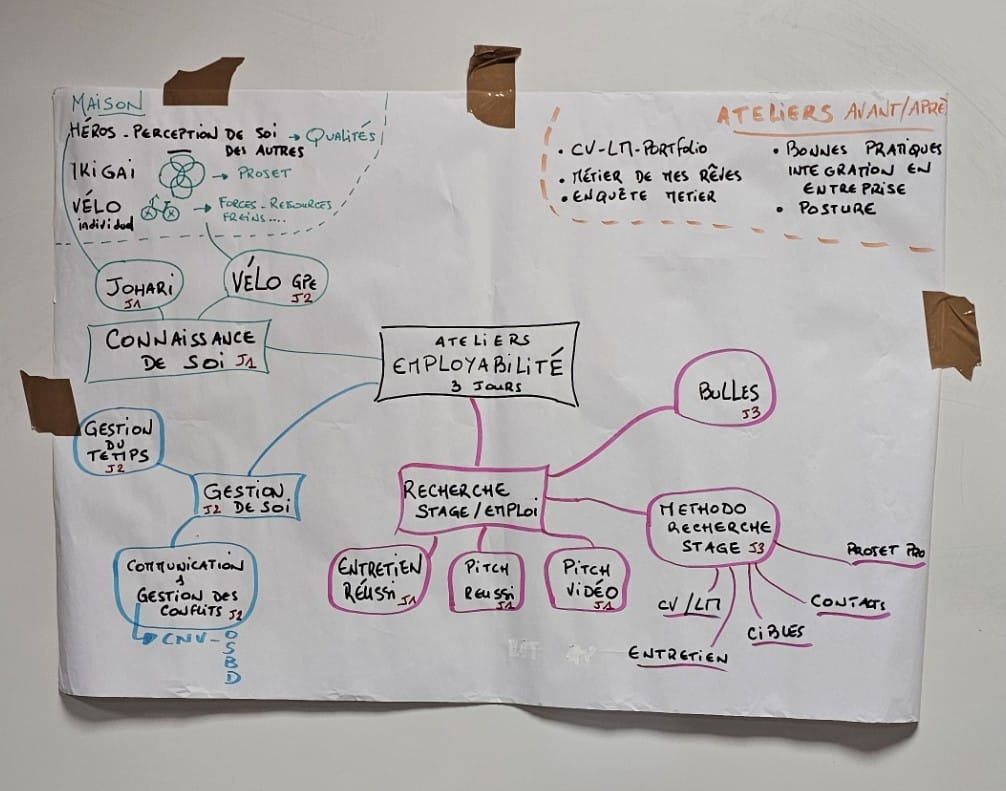 MAISON
HÉROS - PERCEPTION DE SOI → QUALITÉS
DES AUTRES
IKIGAI → PROJET
VÉLO → FORCES - RESSOURCES
individuel FREINS....
ATELIERS AVANT/APRÈ
• CV-LM-PORTFOLIO
• MÉTIER DE MES RÊVES
• ENQUÊTE METIER
• BONNES PRATIQUES
INTEGRATION EN
ENTREPRISE
• POSTURE
JOHARI
J1
VÉLO GPE
J2
CONNAISSANCE
DE SOI J1
ATELIERS
EMPLOYABILITÉ
3 JOURS
BULLES
J3
GESTION
DU
TEMPS
J2
GESTION
J2 DE SOI
RECHERCHE
STAGE/EMPLOI
METHODO
RECHERCHE
STAGE J3
PROJET PRO
CONTACTS
CIBLES
ENTRETIEN
CV/LM
COMMUNICATION
&
GESTION DES
CONFLITS J2
→ CNV - O
S
B
D
ENTRETIEN
RÉUSSI J1
PITCH
REUSSI
J1
PITCH
VIDÉO
J1